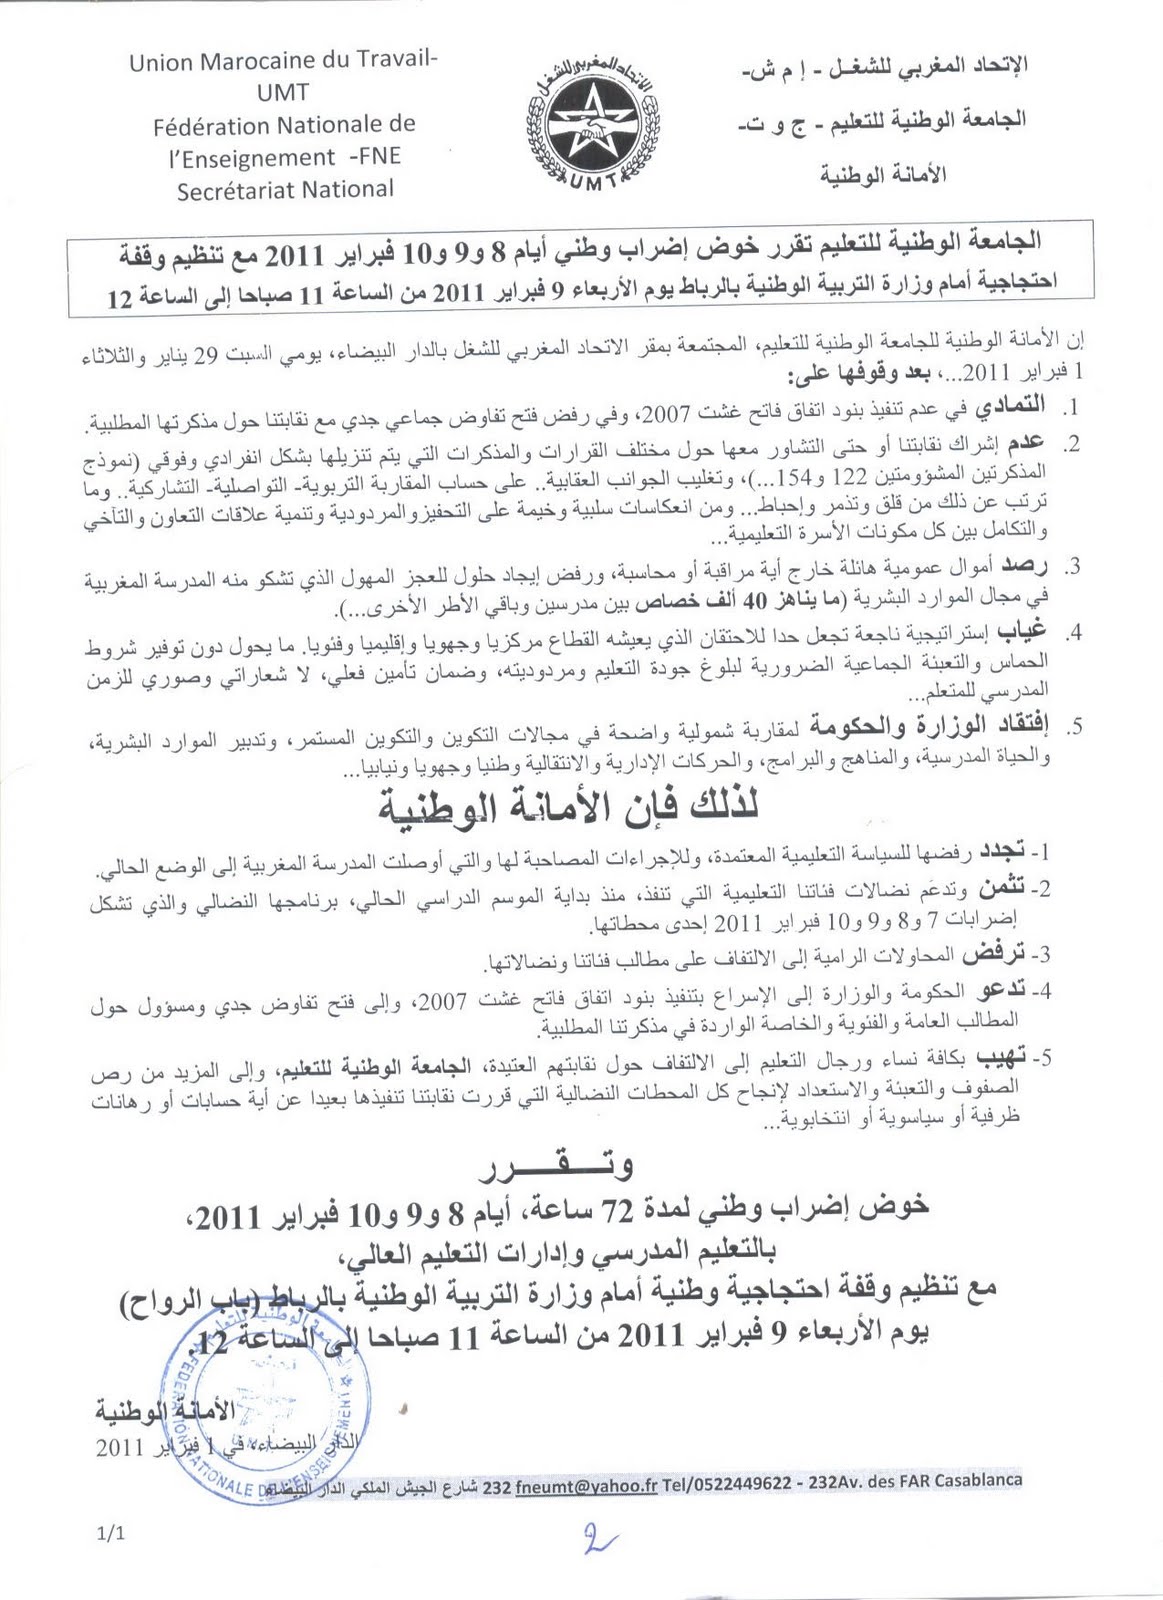 Union Marocaine du Travail-
UMT
Fédération Nationale de
l'Enseignement -FNE
Secrétariat National
الاتحاد المغربي للشغل
UMT
الإتحاد المغربي للشغـل - إ م ش-
الجامعة الوطنية للتعليم - ج و ت-
الأمانة الوطنية
الجامعة الوطنية للتعليم تقرر خوض إضراب وطني أيام 8 و9 و10 فبراير 2011 مع تنظيم وقفة
احتجاجية أمام وزارة التربية الوطنية بالرباط يوم الأربعاء 9 فبراير 2011 من الساعة 11 صباحا إلى الساعة 12
إن الأمانة الوطنية للجامعة الوطنية للتعليم، المجتمعة بمقر الاتحاد المغربي للشغل بالدار البيضاء، يومي السبت 29 يناير والثلاثاء
1 فبراير 2011...، بعد وقوفها على:
1. التمادي في عدم تنفيذ بنود اتفاق فاتح غشت 2007، وفي رفض فتح تفاوض جماعي جدي مع نقابتنا حول مذكرتها المطلبية.
2. عدم إشراك نقابتنا أو حتى التشاور معها حول مختلف القرارات والمذكرات التي يتم تنزيلها بشكل انفرادي وفوقي (نموذج
المذكرتين المشؤومتين 122 و154...)، وتغليب الجوانب العقابية.. على حساب المقاربة التربوية- التواصلية- التشاركية.. وما
ترتب عن ذلك من قلق وتذمر وإحباط... ومن انعكاسات سلبية وخيمة على التحفيزوالمردودية وتنمية علاقات التعاون والتآخي
والتكامل بين كل مكونات الأسرة التعليمية...
3. رصد أموال عمومية هائلة خارج أية مراقبة أو محاسبة، ورفض إيجاد حلول للعجز المهول الذي تشكو منه المدرسة المغربية
في مجال الموارد البشرية (ما يناهز 40 ألف خصاص بين مدرسين وباقي الأطر الأخرى...).
4. غياب إستراتيجية ناجعة تجعل حدا للاحتقان الذي يعيشه القطاع مركزيا وجهويا وإقليميا وفئويا. ما يحول دون توفير شروط
الحماس والتعبئة الجماعية الضرورية لبلوغ جودة التعليم ومردوديته، وضمان تأمين فعلي، لا شعاراتي وصوري للزمن
المدرسي للمتعلم...
5. إفتقاد الوزارة والحكومة لمقاربة شمولية واضحة في مجالات التكوين والتكوين المستمر، وتدبير الموارد البشرية،
والحياة المدرسية، والمناهج والبرامج، والحركات الإدارية والانتقالية وطنيا وجهويا ونيابيا...
لذلك فإن الأمانة الوطنية
1- تجدد رفضها للسياسة التعليمية المعتمدة، وللإجراءات المصاحبة لها والتي أوصلت المدرسة المغربية إلى الوضع الحالي.
2- تثمن وتدعَم نضالات فئاتنا التعليمية التي تنفذ، منذ بداية الموسم الدراسي الحالي، برنامجها النضالي والذي تشكل
إضرابات 7 و8 و9 و10 فبراير 2011 إحدى محطاتها.
3- ترفض المحاولات الرامية إلى الالتفاف على مطالب فئاتنا ونضالاتها.
4- تدعو الحكومة والوزارة إلى الإسراع بتنفيذ بنود اتفاق فاتح غشت 2007، وإلى فتح تفاوض جدي ومسؤول حول
المطالب العامة والفئوية والخاصة الواردة في مذكرتنا المطلبية.
5- تهيب بكافة نساء ورجال التعليم إلى الالتفاف حول نقابتهم العتيدة، الجامعة الوطنية للتعليم، وإلى المزيد من رص
الصفوف والتعبئة والاستعداد لإنجاح كل المحطات النضالية التي قررت نقابتنا تنفيذها بعيدا عن أية حسابات أو رهانات
ظرفية أو سياسوية أو انتخابوية...
وتـــقـــــرر
خوض إضراب وطني لمدة 72 ساعة، أيام 8 و9 و10 فبراير 2011،
بالتعليم المدرسي وإدارات التعليم العالي،
مع تنظيم وقفة احتجاجية وطنية أمام وزارة التربية الوطنية بالرباط (باب الرواح)
يوم الأربعاء 9 فبراير 2011 من الساعة 11 صباحا إلى الساعة 12.
الجامعة الوطنية للتعليم
FEDERATION NATIONALE DE L'ENSEIGNEMENT
الأمانة الوطنية
الدار البيضاء، في 1 فبراير 2011
232 شارع الجيش الملكي الدار البيضاء fneumt@yahoo.fr Tel/0522449622 - 232Av. des FAR Casablanca
1/1
2